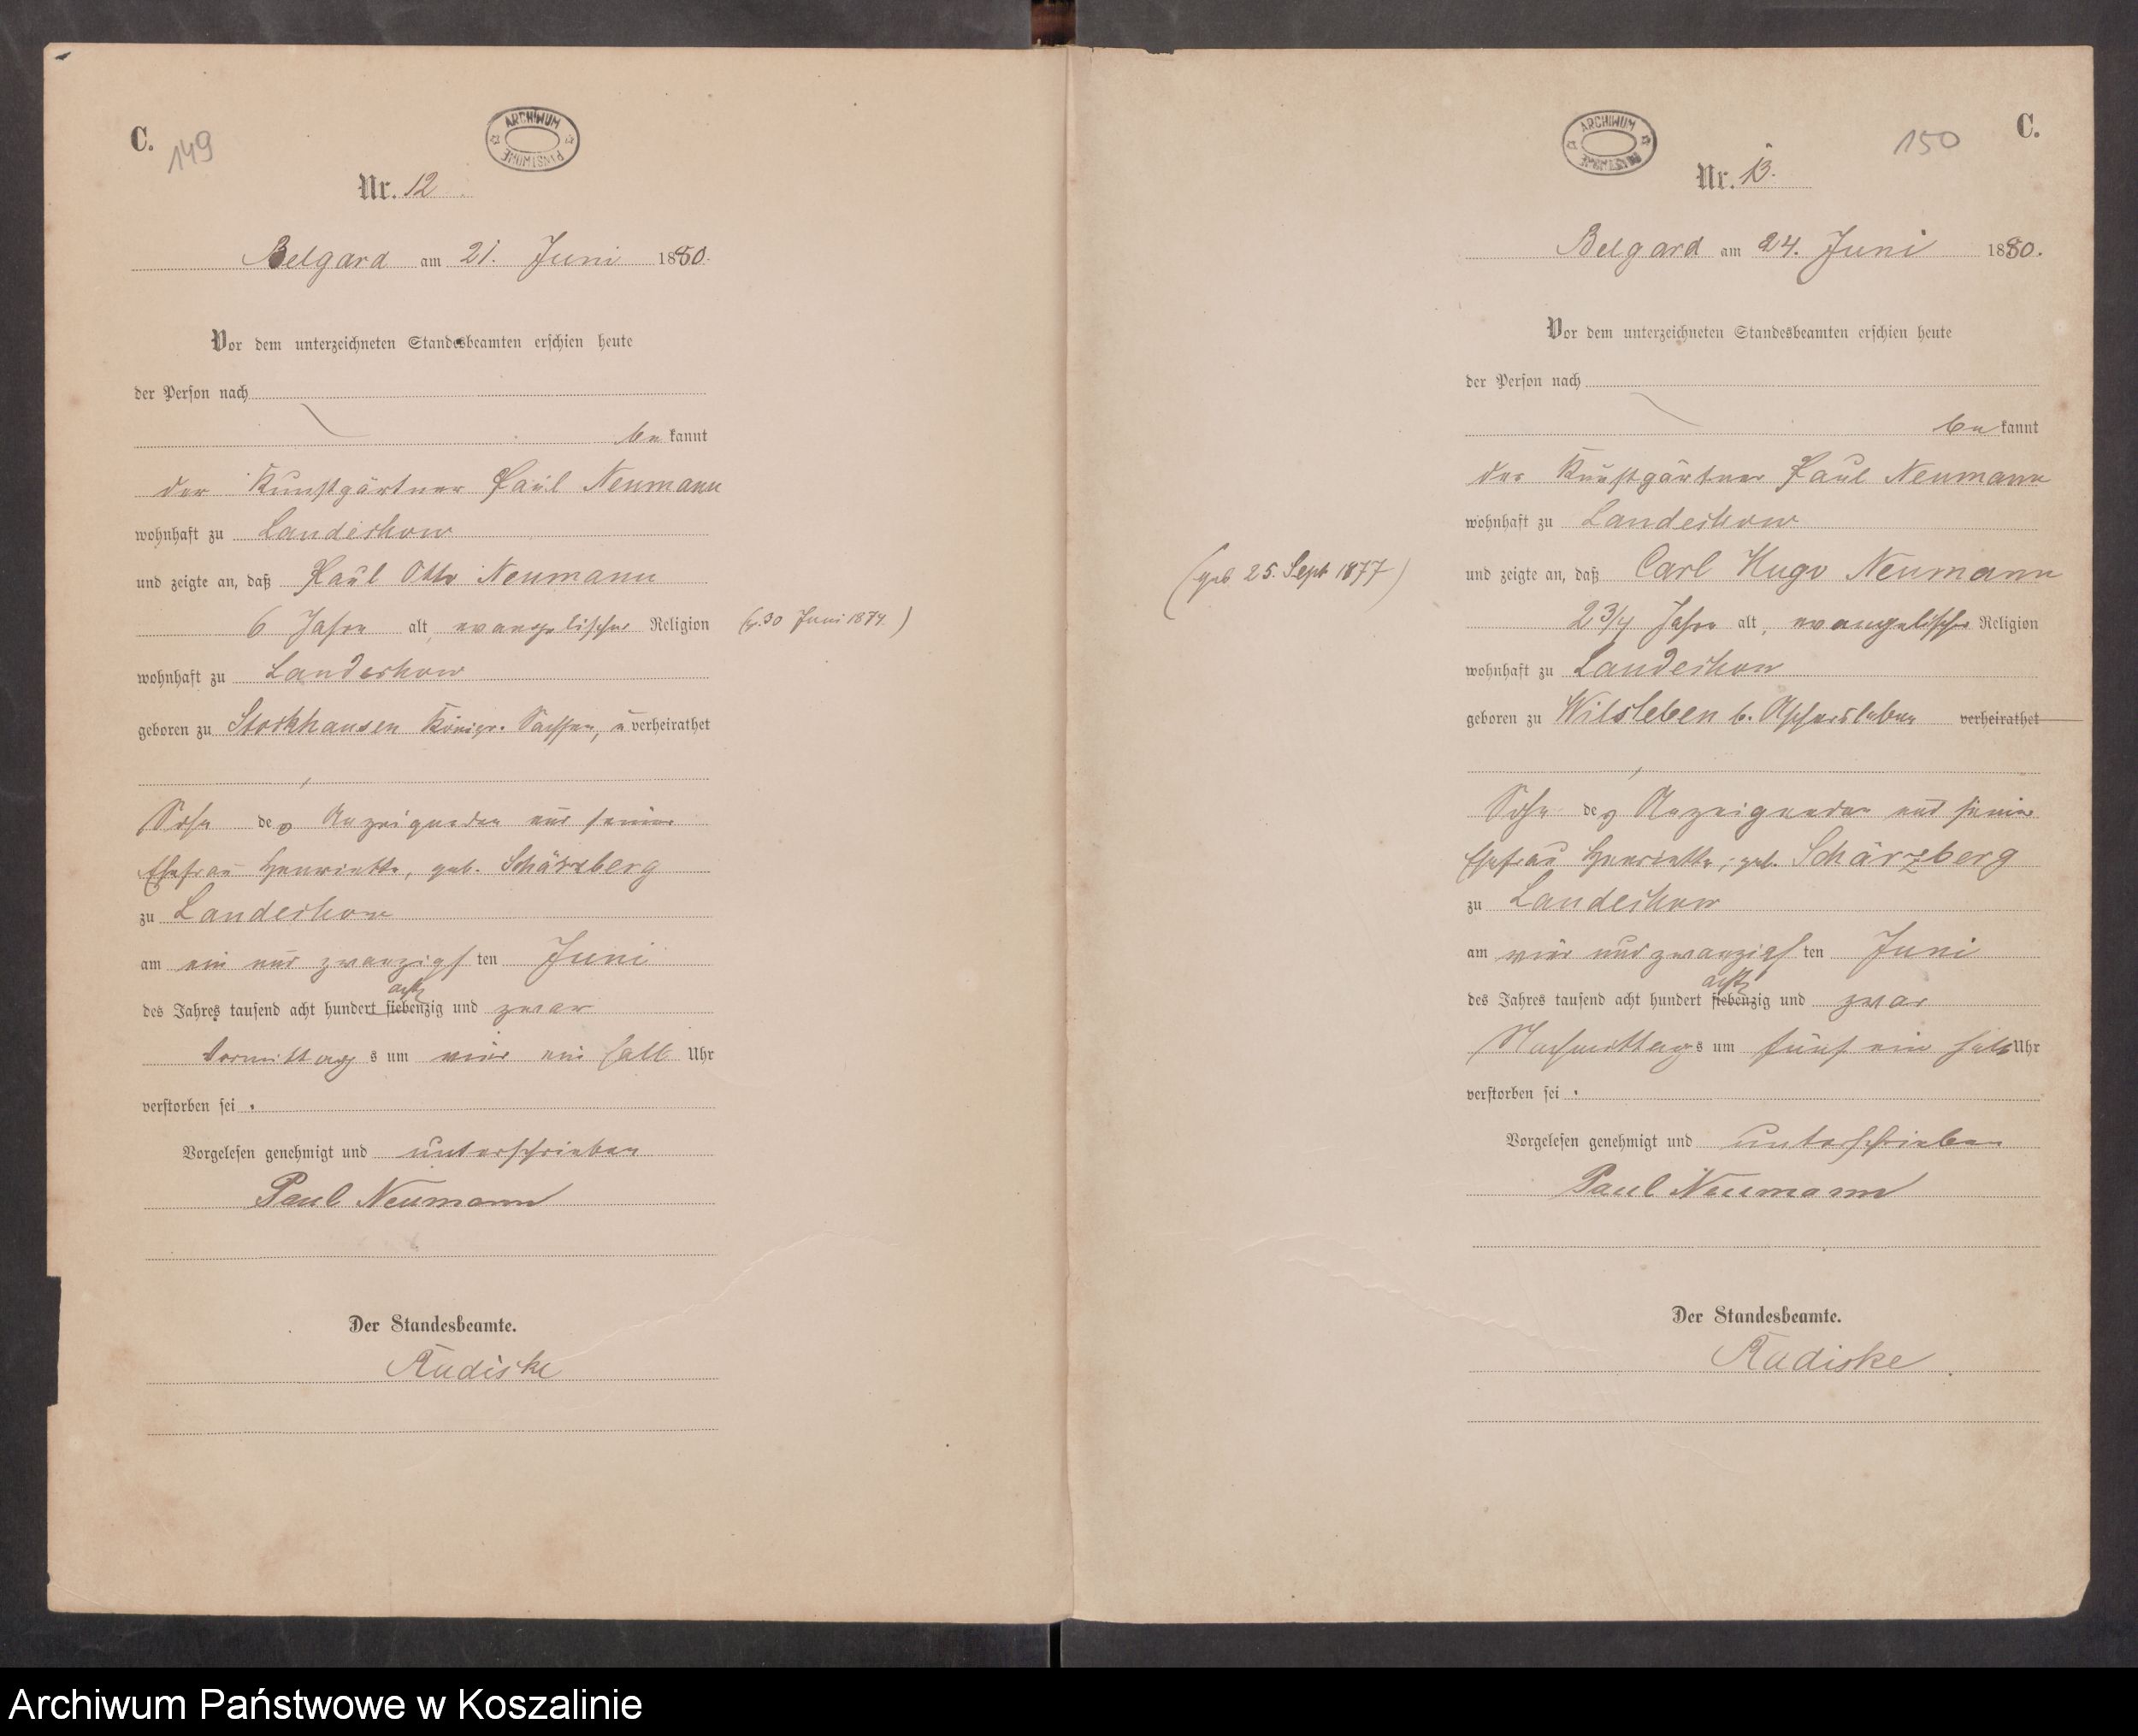 C.
149
ARCHIWUM PAŃSTWOWE
Nr. 12
Belgard am 21. Juni 1880.
Vor dem unterzeichneten Standesbeamten erschien heute
der Person nach
bekannt
der Kunstgärtner Paul Neumann
wohnhaft zu Landechow
und zeigte an, daß Paul Otto Neumann
6 Jahre alt, evangelischer Religion (g. 30 Juni 1874.)
wohnhaft zu Landechow
geboren zu Stockhausen Königr. Sachsen, unverheirathet
Sohn des Anzeigenden und seiner
Ehefrau Henriette, geb. Schärzberg
zu Landechow
am ein und zwanzigsten Juni
des Jahres tausend acht hundert siebenzig acht und zwar
Vormittags um vier ein halb Uhr
verstorben sei.
Vorgelesen genehmigt und unterschrieben
Paul Neumann
Der Standesbeamte.
Radiske
C.
150
ARCHIWUM PAŃSTWOWE
Nr. 13.
Belgard am 24. Juni 1880.
Vor dem unterzeichneten Standesbeamten erschien heute
der Person nach
bekannt
der Kunstgärtner Paul Neumann
wohnhaft zu Landechow
(geb. 25. Sept 1877) und zeigte an, daß Carl Hugo Neumann
2 3/4 Jahre alt, evangelischer Religion
wohnhaft zu Landechow
geboren zu Wilsleben b. Aschersleben verheirathet
Sohn des Anzeigenden und seiner
Ehefrau Henriette, geb. Schärzberg
zu Landechow
am vier und zwanzigsten Juni
des Jahres tausend acht hundert siebenzig acht und zwar
Nachmittags um fünf ein halb Uhr
verstorben sei.
Vorgelesen genehmigt und unterschrieben
Paul Neumann
Der Standesbeamte.
Radiske
Archiwum Państwowe w Koszalinie